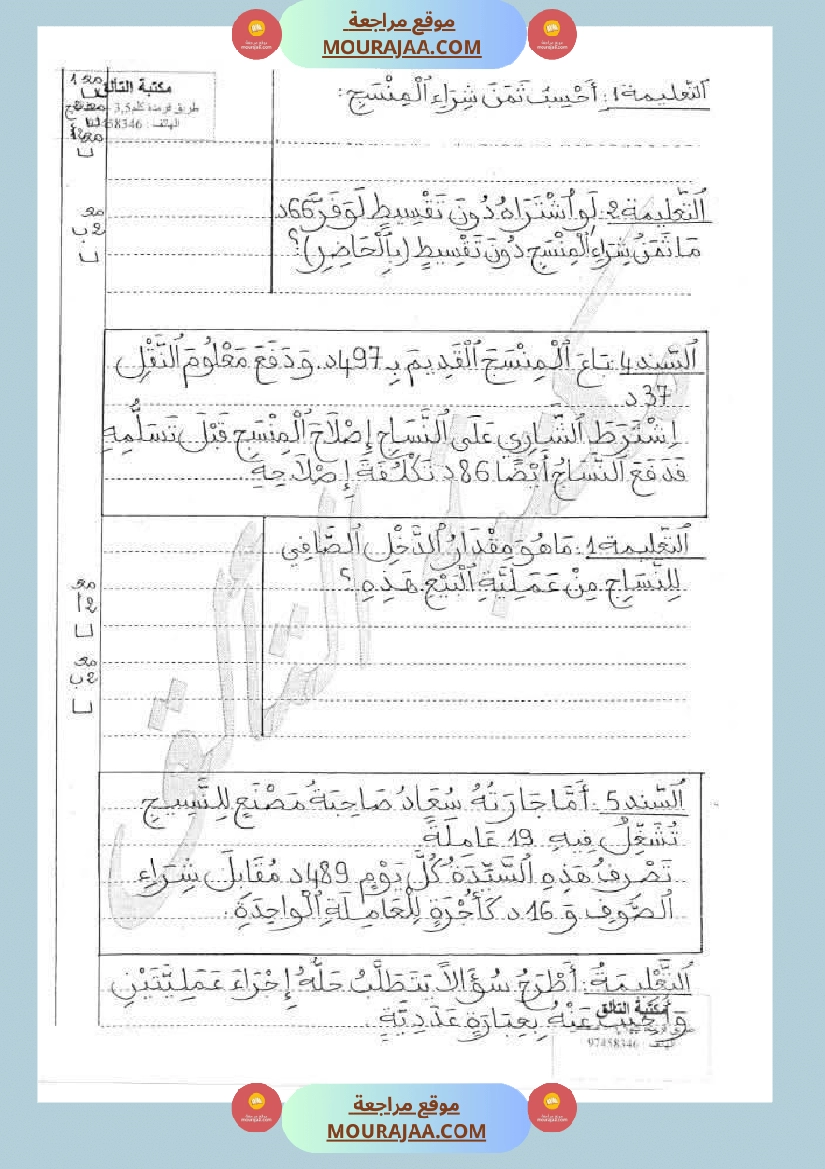 موقع مراجعة
MOURAJAA.COM
مكتبة التألق
التَّعْلِيمَة 1: أَحْسِبُ ثَمَنَ شِرَاءِ ٱلْمِنْسَجِ:
التَّعْلِيمَة 2: لَوِ ٱشْتَرَاهُ دُونَ تَقْسِيطٍ لَوَفَّرَ 66د
مَا ثَمَنُ شِرَاءِ ٱلْمِنْسَجِ دُونَ تَقْسِيطٍ (بِٱلْحَاضِرِ)؟
السَّنَد 4: بَاعَ ٱلْمِنْسَجَ ٱلْقَدِيمَ بِـ 497د. وَدَفَعَ مَعْلُومَ ٱلنَّقْلِ
37 د
اِشْتَرَطَ ٱلشَّارِي عَلَى ٱلنَّسَّاجِ إِصْلَاحَ ٱلْمِنْسَجِ قَبْلَ تَسَلُّمِهِ
فَدَفَعَ ٱلنَّسَّاجُ أَيْضًا 86د تَكْلُفَةَ إِصْلَاحِهِ
التَّعْلِيمَة 1: مَا هُوَ مِقْدَارُ ٱلدَّخْلِ ٱلصَّافِي
لِلنَّسَّاجِ مِنْ عَمَلِيَّةِ ٱلْبَيْعِ هَذِهِ؟
السَّنَد 5: أَمَّا جَارَتُهُ سُعَادُ صَاحِبَةُ مَصْنَعٍ لِلنَّسِيجِ
تُشَغِّلُ فِيهِ 19 عَامِلَةً
تَصْرِفُ هَذِهِ ٱلسَّيِّدَةُ كُلَّ يَوْمٍ 489د مُقَابِلَ شِرَاءِ
ٱلصُّوفِ وَ 16د كَأُجْرَةٍ لِلْعَامِلَةِ ٱلْوَاحِدَةِ.
التَّعْلِيمَةُ: أَطْرَحُ سُؤَالًا يَتَطَلَّبُ حَلُّهُ إِجْرَاءَ عَمَلِيَّتَيْنِ
وَأُجِيبُ عَنْهُ بِعِبَارَةٍ عَدَدِيَّةٍ.
مكتبة التألق
97458346
موقع مراجعة
MOURAJAA.COM